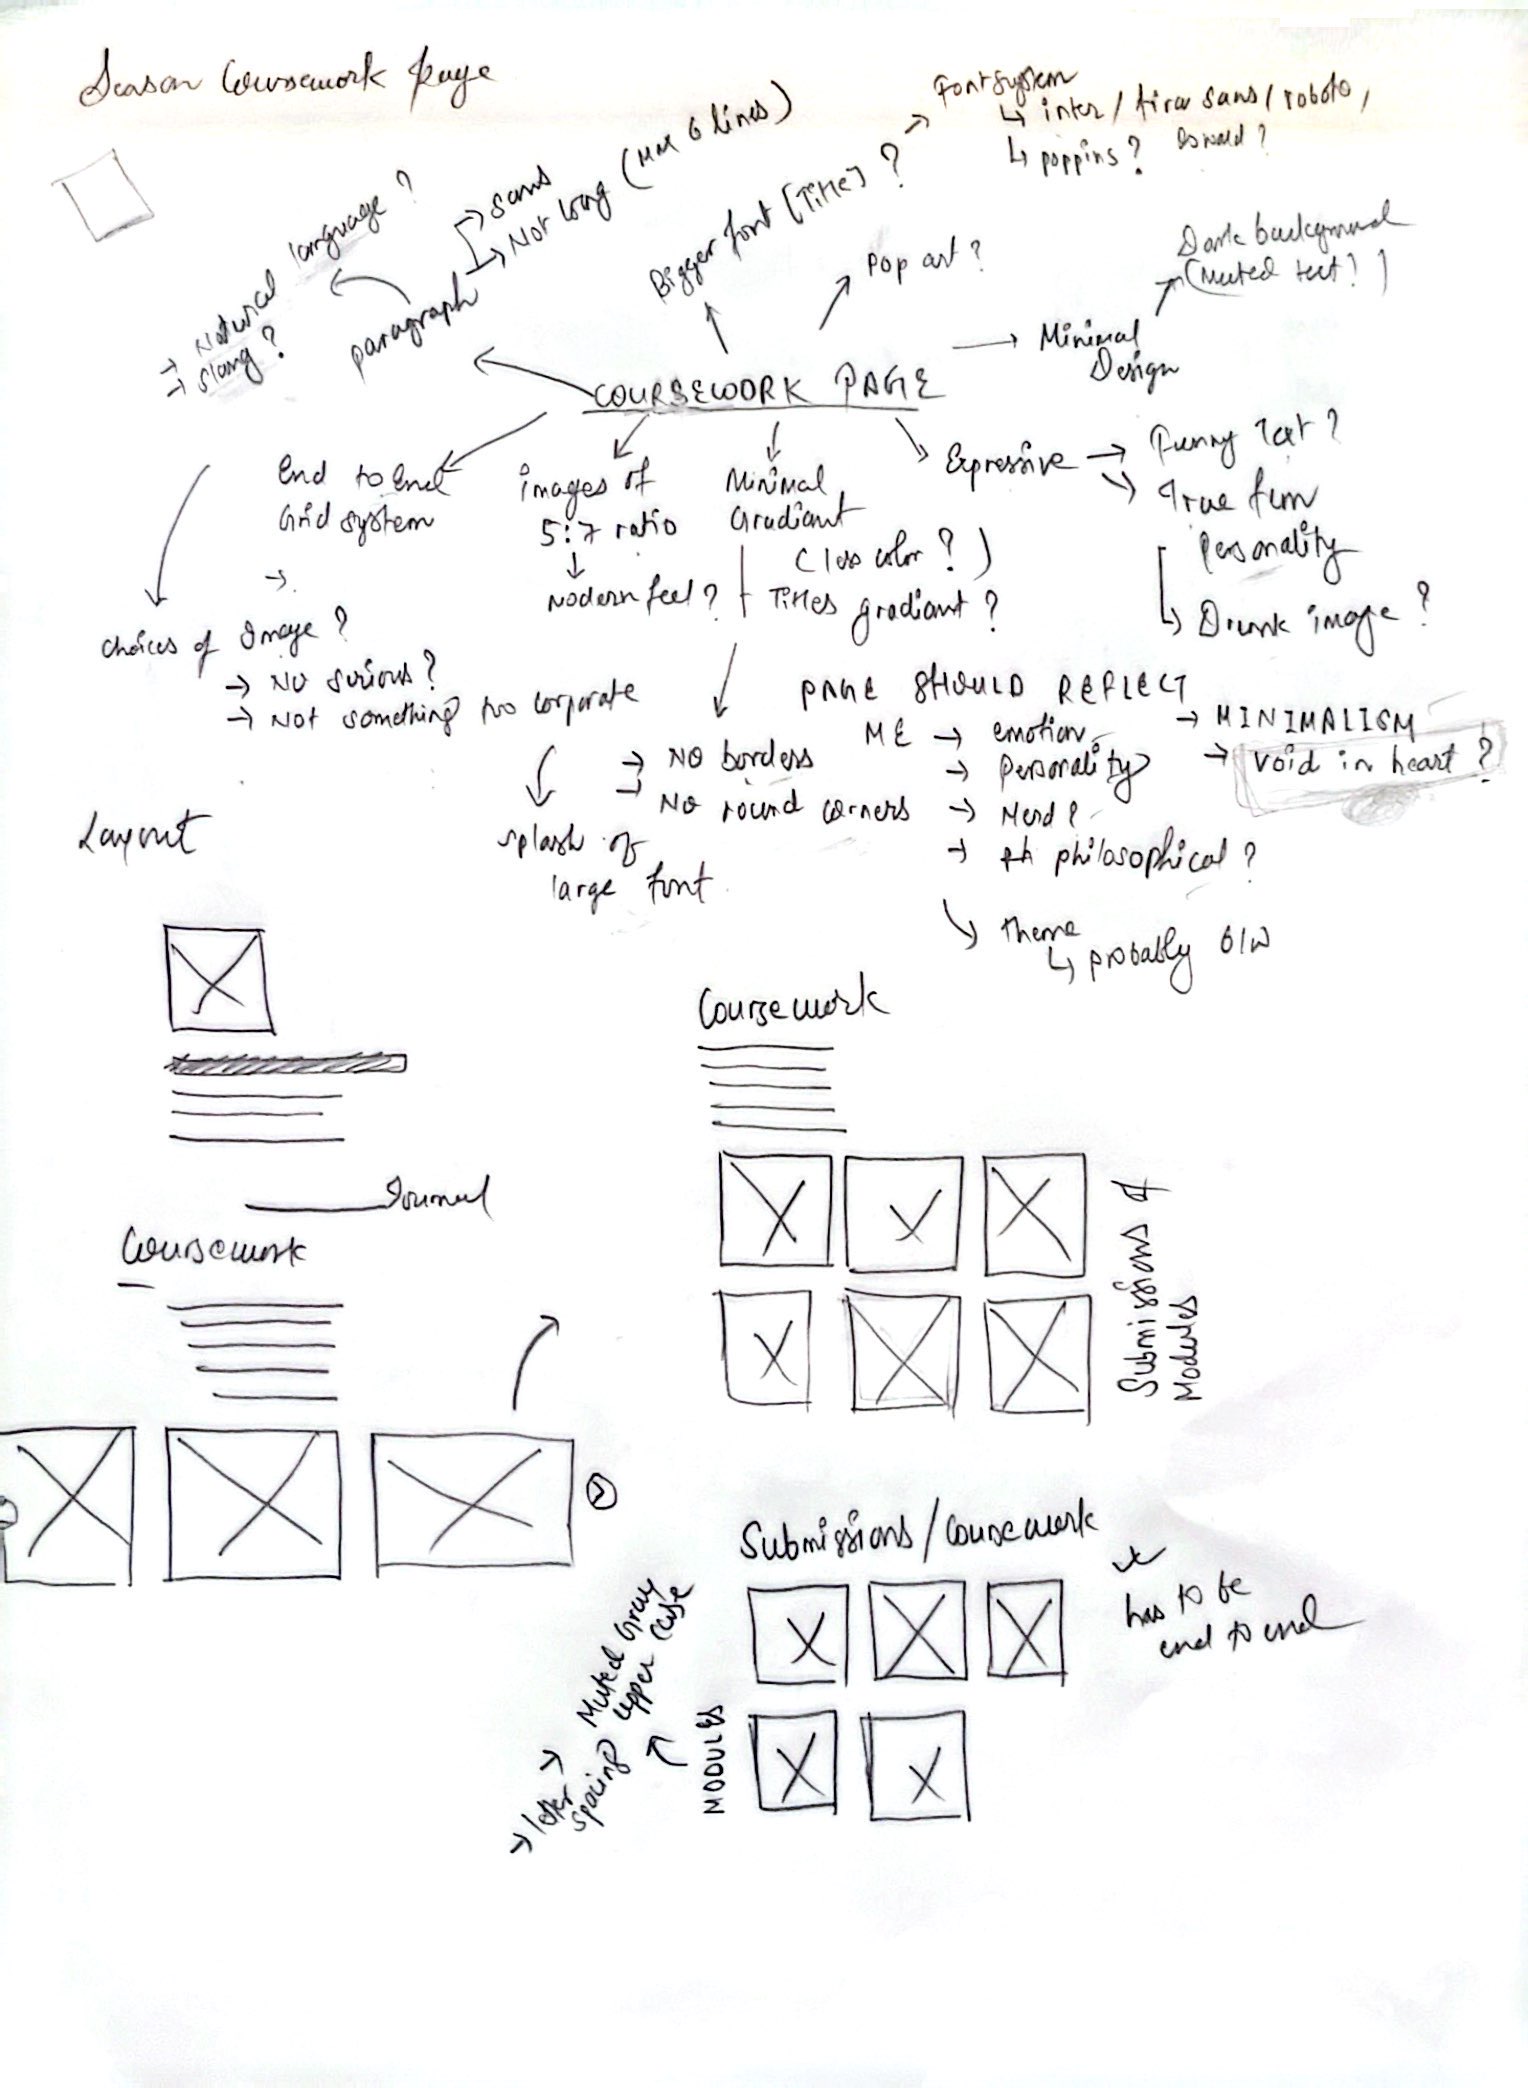 Season Coursework page
Font system
↳ inter / fira sans / roboto,
↳ poppins? Oswald?
Bigger font (Title)?
→ Sans
→ Not long (MAX 6 lines)
paragraph
→ Natural language?
→ slang?
Pop art?
Dark background
(Muted text!)
Minimal
Design
COURSEWORK PAGE
End to End
Grid system
images of
5:7 ratio
Modern feel?
Minimal
Gradiant
(less color?)
Titles gradiant?
Expressive
→ Funny Text?
→ True fun
Personality
↳ Drunk image?
choices of Image?
→ No serious?
→ Not something too corporate
splash of
large font
→ NO borders
→ No round corners
PAGE SHOULD REFLECT
ME → emotion
→ Personality
→ Nerd?
→ philosophical?
→ MINIMALISM
→ Void in heart?
theme
↳ probably B/W
Layout
Journal
Coursework
Coursework
Submissions of
Modules
Submissions / Coursework
has to be
end to end
MODULES
→ Muted Gray
upper case
→ letter
spacing